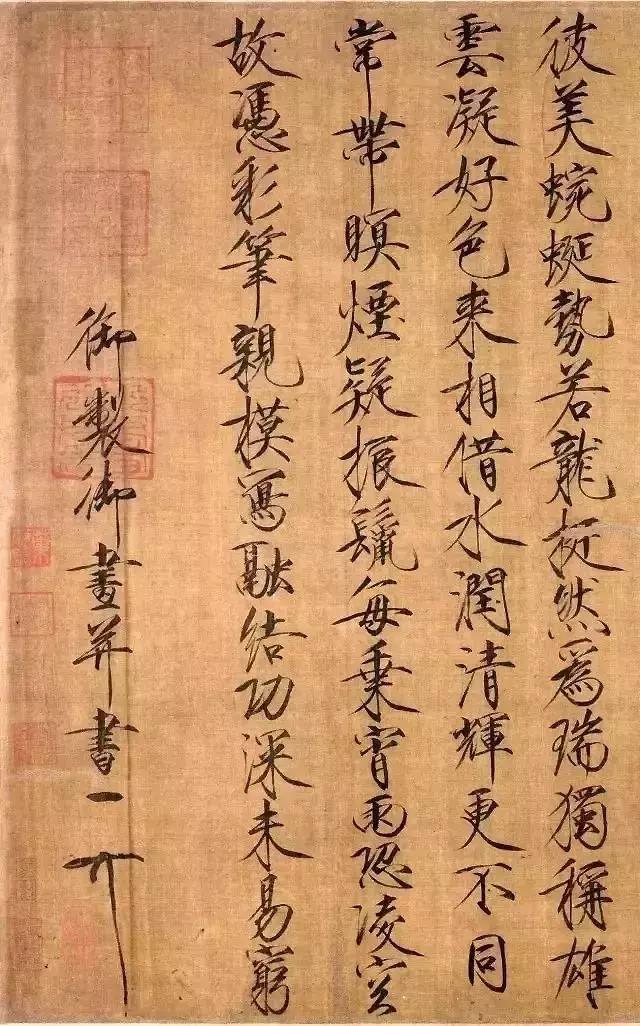 彼美蜿蜒勢若龍挺然為瑞獨稱雄
雲凝好色來相借水潤清輝更不同
常帶暝煙疑振鬣每乘宵雨恐凌空
故憑彩筆親模寫融結功深未易窮
御製御畫并書